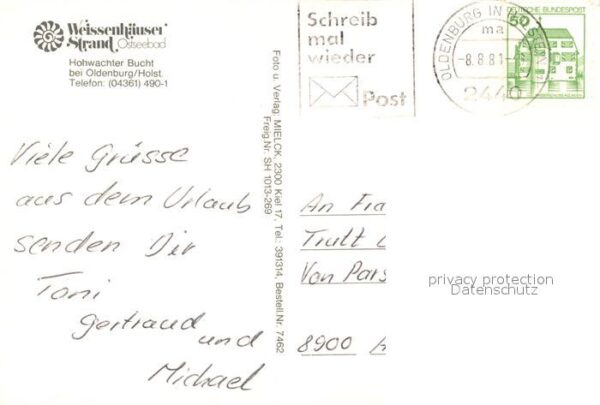 Weissenhäuser
Strand Ostseebad
Hohwachter Bucht
bei Oldenburg/Holst.
Telefon: (04361) 490-1
Viele Grüsse
aus dem Urlaub
senden Dir
Toni
Gertraud
und
Michael
Foto u. Verlag: MIELCK, 2300 Kiel 17, Tel.: 391314, Bestell.Nr. 7462
Freig.Nr. SH 1013-269
Schreib
mal
wieder
Post
OLDENBURG IN HOLSTEIN
ma
-8.8.81-
2440
DEUTSCHE BUNDESPOST
50
An Fra
Trutt
Von Pars
8900
privacy protection
Datenschutz